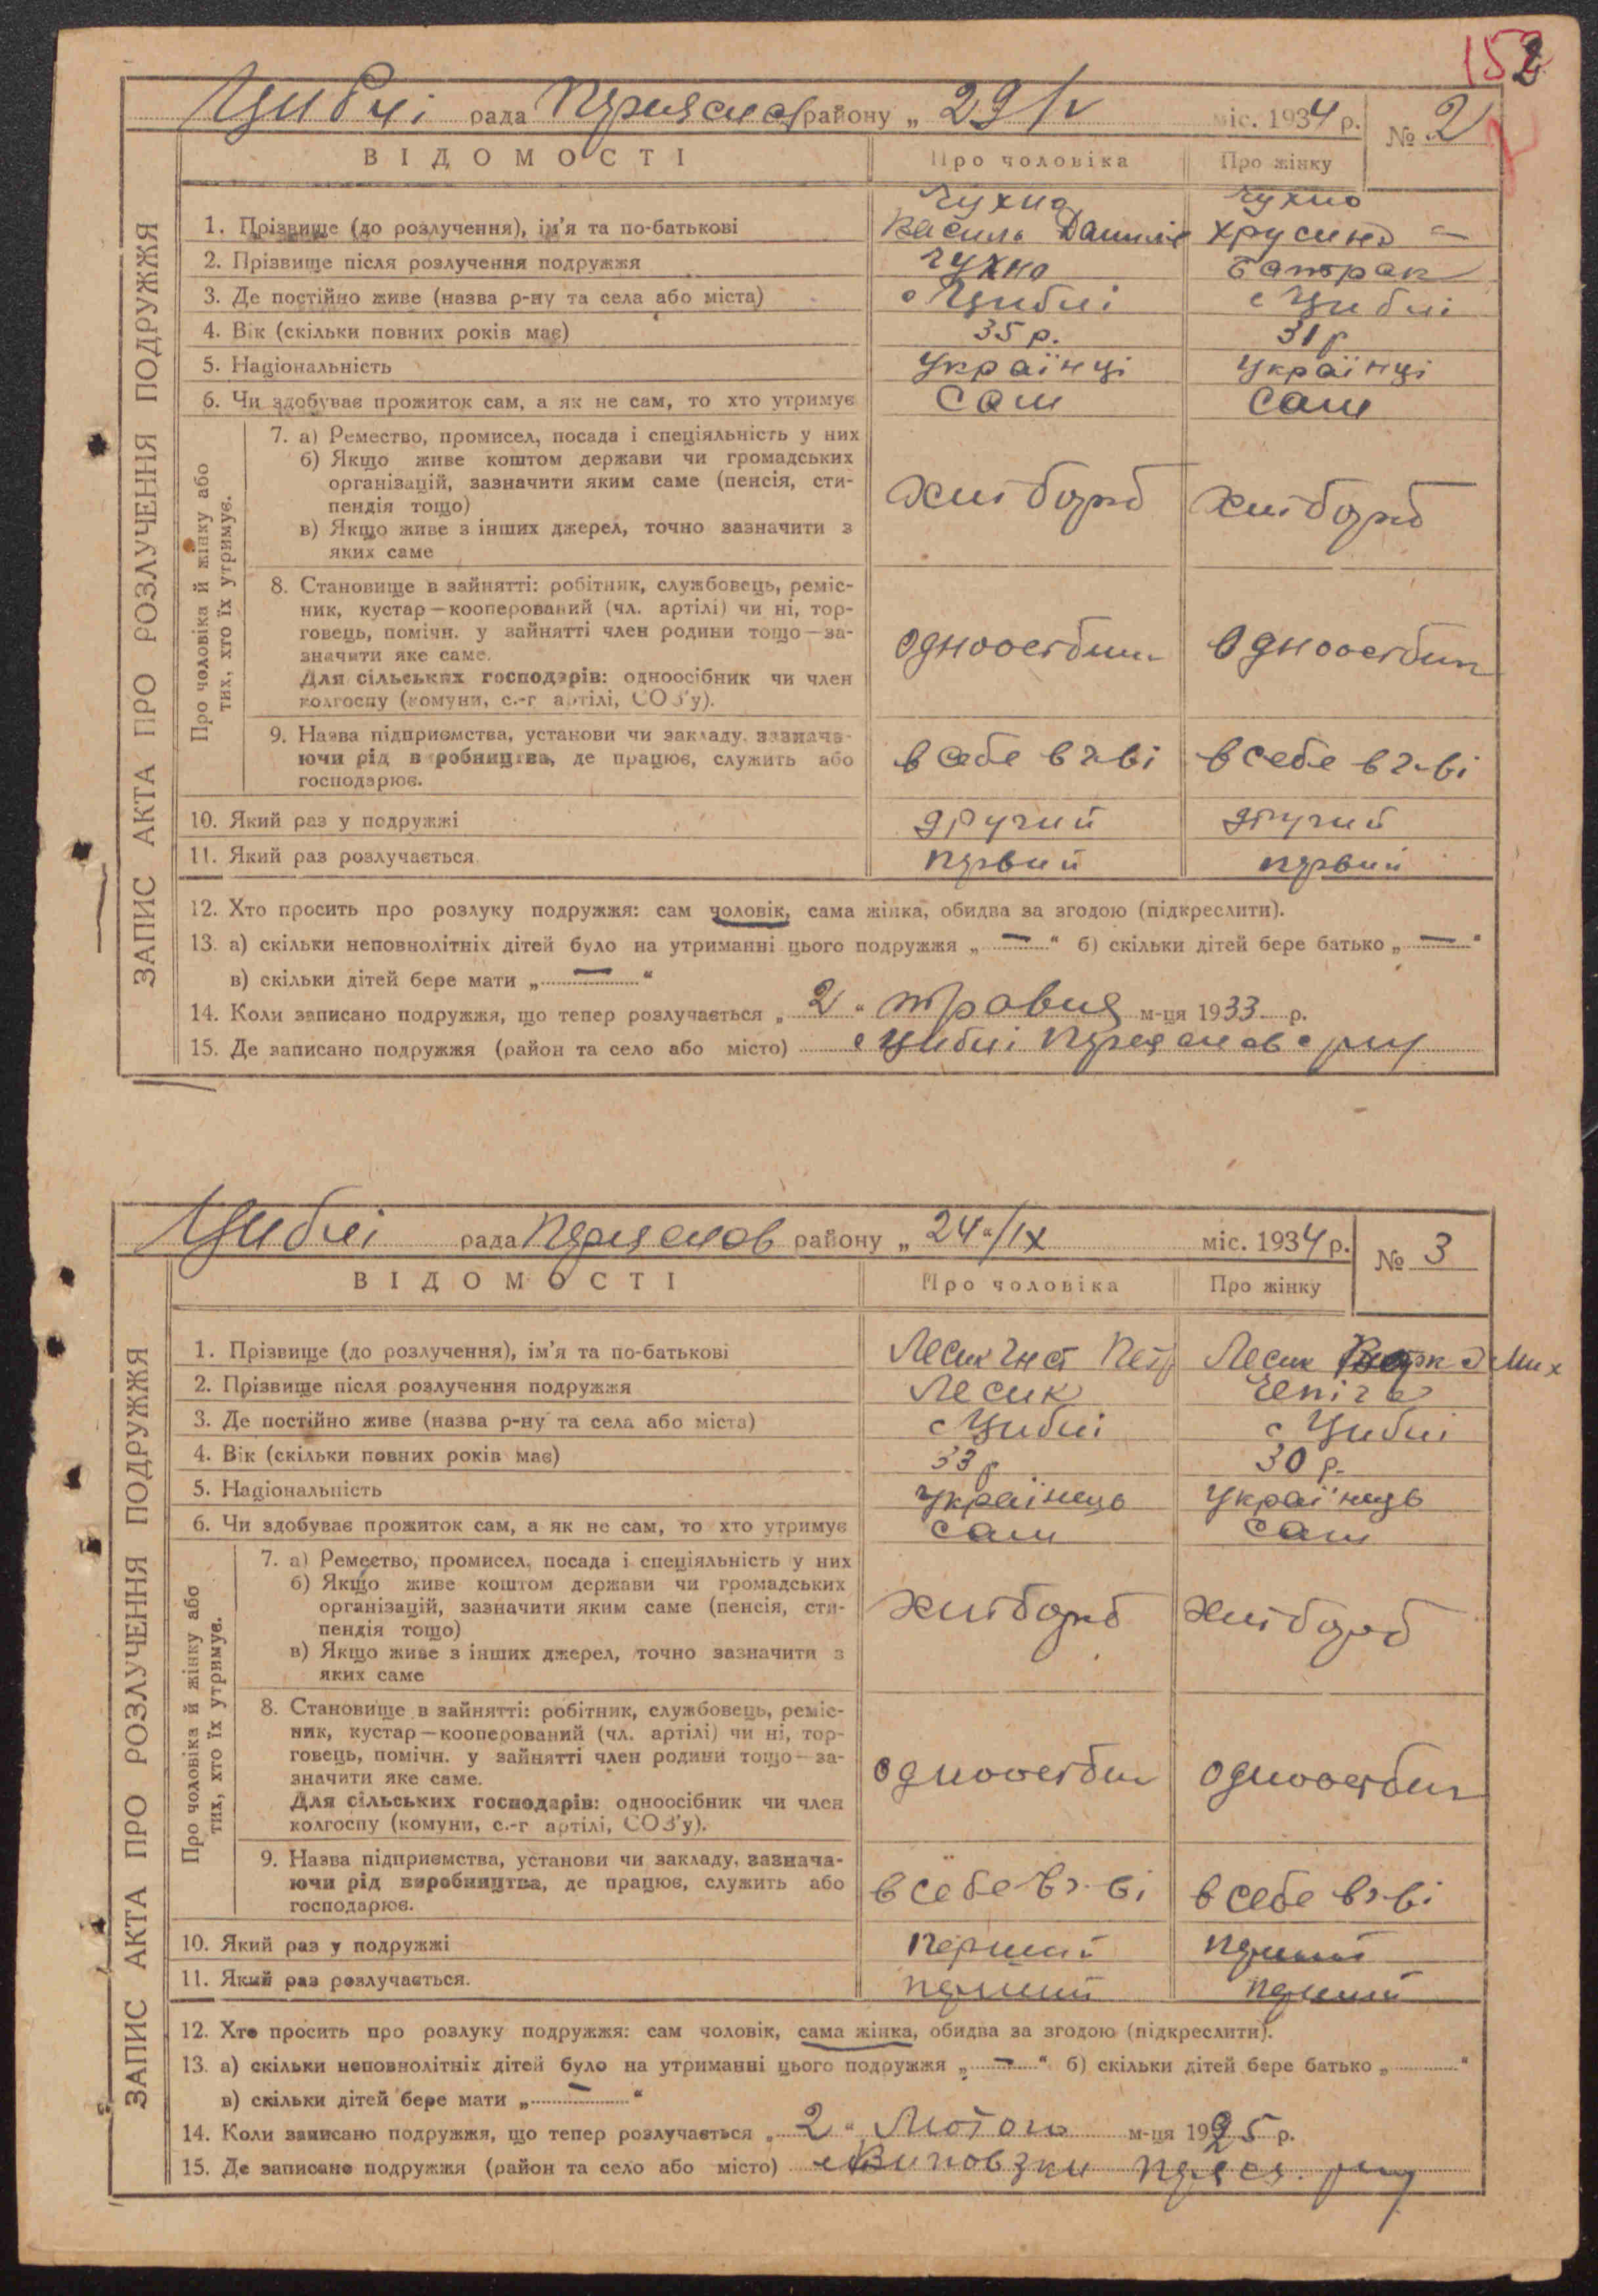 152
Цибл і рада Переяслов району „ 29/V міс. 1934 р. № 2
ВІДОМОСТІ Про чоловіка Про жінку
ЗАПИС АКТА ПРО РОЗЛУЧЕННЯ ПОДРУЖЖЯ
Чухно Чухно
1. Прізвище (до розлучення), ім'я та по-батькові Василь Данилів
2. Прізвище після розлучення подружжя Чухно Батрак
3. Де постійно живе (назва р-ну та села або міста) с Циблі с Циблі
4. Вік (скільки повних років має) 35 р. 31 р
5. Національність Українці Українці
6. Чи здобуває прожиток сам, а як не сам, то хто утримує Сам Сам
Про чоловіка й жінку або тих, хто їх утримує.
7. а) Ремество, промисел, посада і спеціяльність у них
б) Якщо живе коштом держави чи громадських
організацій, зазначити яким саме (пенсія, сти-
пендія тощо)
хлібороб хлібороб
в) Якщо живе з інших джерел, точно зазначити з
яких саме
8. Становище в зайнятті: робітник, службовець, реміс-
ник, кустар—кооперований (чл. артілі) чи ні, тор-
говець, помічн. у зайнятті член родини тощо—за-
значити яке саме.
одноосібник одноосібник
Для сільських господарів: одноосібник чи член
колгоспу (комуни, с.-г артілі, СОЗ'у).
9. Назва підприємства, установи чи закладу, зазнача-
ючи рід виробництва, де працює, служить або в себе в г-ві в себе в г-ві
господарює.
10. Який раз у подружжі другий другий
11. Який раз розлучається первий первий
12. Хто просить про розлуку подружжя: сам чоловік, сама жінка, обидва за згодою (підкреслити).
13. а) скільки неповнолітніх дітей було на утриманні цього подружжя „ — “ б) скільки дітей бере батько „ — “
в) скільки дітей бере мати „ — “
14. Коли записано подружжя, що тепер розлучається „ 2 “ травня м-ця 1933 р.
15. Де записано подружжя (район та село або місто) с Циблі Переяслов р-ну
Циблі рада Переяслов району „ 24 “/ІХ міс. 1934 р. № 3
ВІДОМОСТІ Про чоловіка Про жінку
ЗАПИС АКТА ПРО РОЗЛУЧЕННЯ ПОДРУЖЖЯ
1. Прізвище (до розлучення), ім'я та по-батькові Лесик Гнат Петр Лесик Мих
2. Прізвище після розлучення подружжя Лесик Чепіга
3. Де постійно живе (назва р-ну та села або міста) с Циблі с Циблі
4. Вік (скільки повних років має) 33 р 30 р.
5. Національність Українець Українець
6. Чи здобуває прожиток сам, а як не сам, то хто утримує сам сам
Про чоловіка й жінку або тих, хто їх утримує.
7. а) Ремество, промисел, посада і спеціяльність у них
б) Якщо живе коштом держави чи громадських
організацій, зазначити яким саме (пенсія, сти-
пендія тощо)
хлібороб хлібороб
в) Якщо живе з інших джерел, точно зазначити з
яких саме
8. Становище в зайнятті: робітник, службовець, реміс-
ник, кустар—кооперований (чл. артілі) чи ні, тор-
говець, помічн. у зайнятті член родини тощо—за-
значити яке саме.
одноосібник одноосібник
Для сільських господарів: одноосібник чи член
колгоспу (комуни, с.-г артілі, СОЗ'у).
9. Назва підприємства, установи чи закладу, зазнача-
ючи рід виробництва, де працює, служить або в себе в г-ві в себе в г-ві
господарює.
10. Який раз у подружжі перший перший
11. Який раз розлучається. перший перший
12. Хто просить про розлуку подружжя: сам чоловік, сама жінка, обидва за згодою (підкреслити).
13. а) скільки неповнолітніх дітей було на утриманні цього подружжя „ — “ б) скільки дітей бере батько „ “
в) скільки дітей бере мати „ — “
14. Коли записано подружжя, що тепер розлучається „ 2 “ Лютого м-ця 1925 р.
15. Де записано подружжя (район та село або місто) р-ну